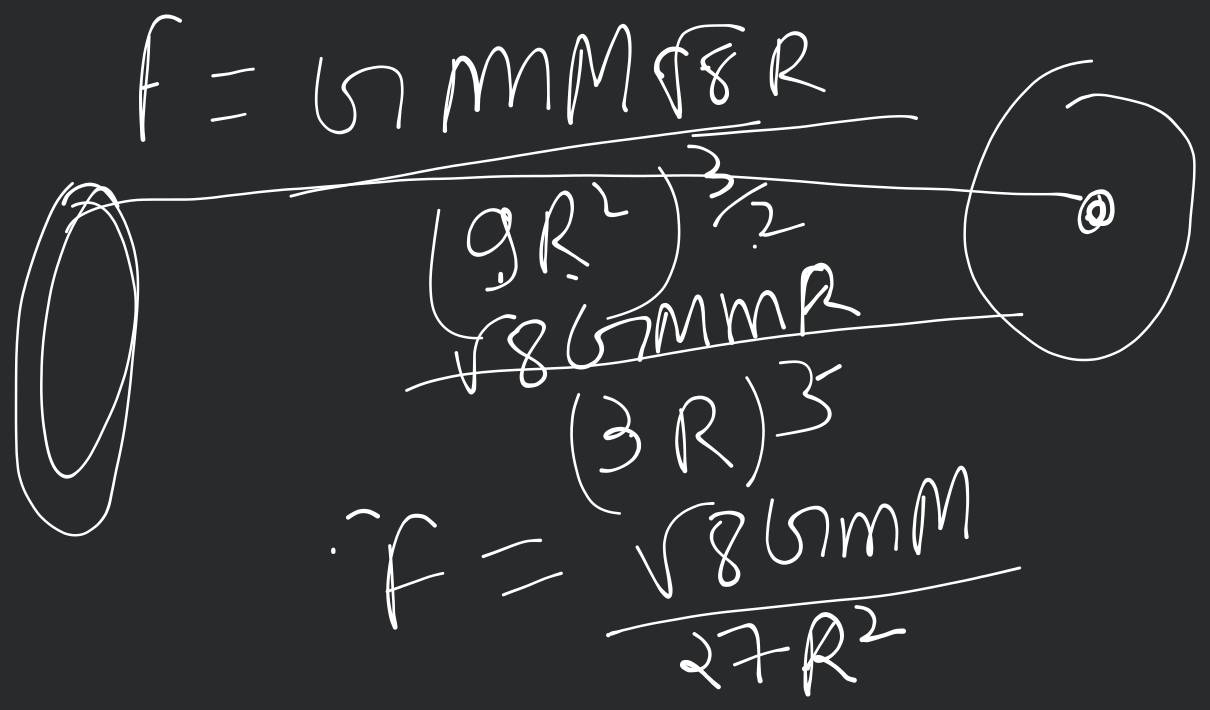 F = GmM√8R
(9R²)^3/2
√8GMmR
(3R)³
F = √8GmM
27R²